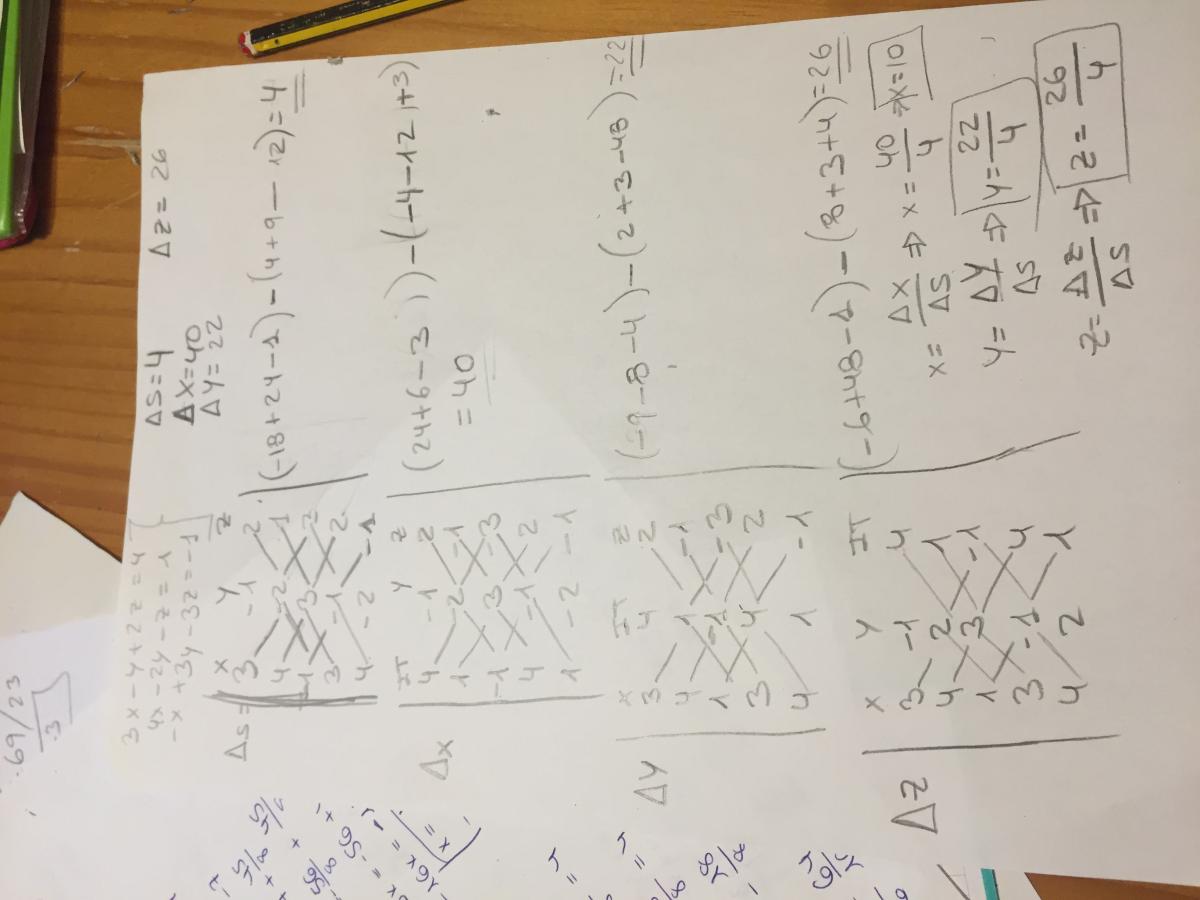 69/23
3
3x - y + 2z = 4
4x - 2y - z = 1
-x + 3y - 3z = -1
Δs = 4
Δx = 40
Δy = 22
Δz = 26
Δs =
x y z
3 -1 2
4 -2 -1
3 -1 2
4 -2 -1
(-18+24-1)-(4+9-12)=4
Δx
IT y z
4 -1 2
1 -2 -1
-1 3 -3
4 -1 2
1 -2 -1
(24+6-3)-(-4-12+3)
= 40
Δy
x IT z
3 4 2
4 1 -1
1 -1 -3
3 4 2
4 1 -1
(-9-8-4)-(2+3-48)=22
Δz
x y IT
3 -1 4
4 2 1
1 3 -1
3 -1 4
4 2 1
(-6+48-1)-(8+3+4)=26
x = Δx/Δs ⇒ x = 40/4 ⇒ x=10
y = Δy/Δs ⇒ y = 22/4
z = Δz/Δs ⇒ z = 26/4